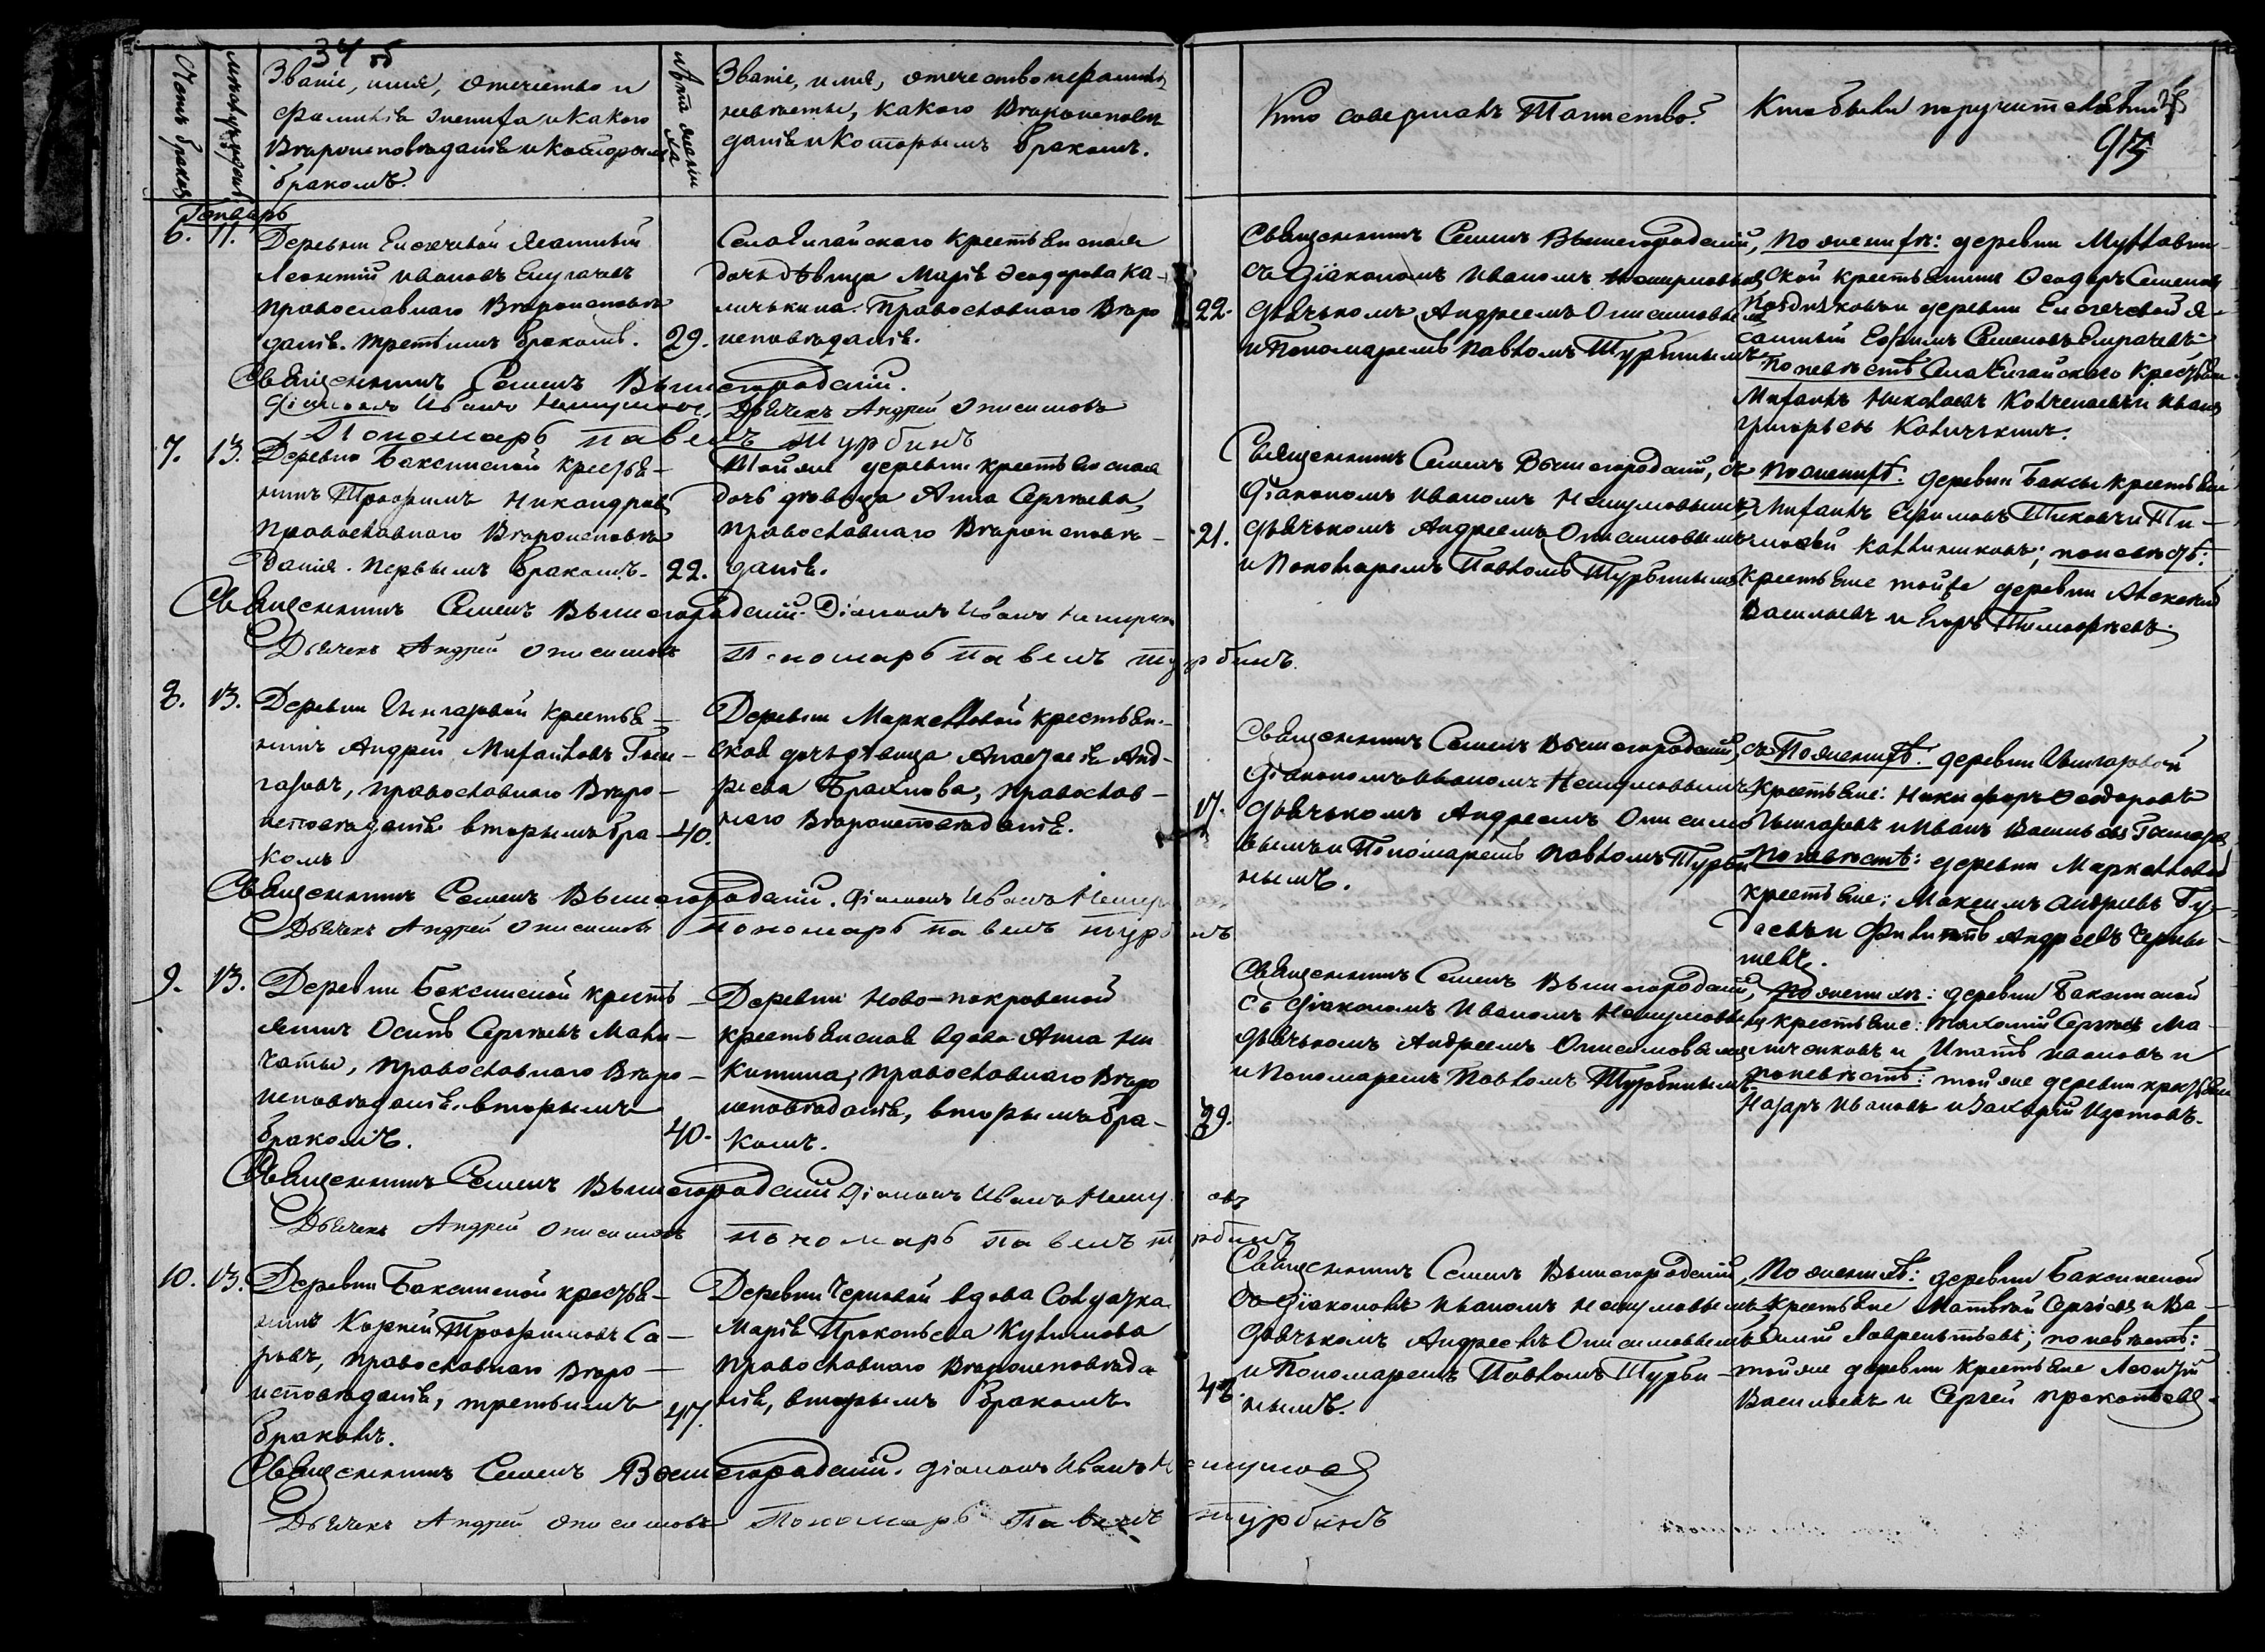 34 об
Счетъ браковъ
Мѣсяцъ и день
Званіе, имя, отчество и
фамилія жениха и какого
вѣроисповѣданія и которымъ
бракомъ.
Лѣта жениха
Званіе, имя, отчество и фамилія
невѣсты, какого вѣроисповѣ
данія и которымъ бракомъ.
Кто совершалъ Таинство?
Кто были поручители
Генварь
6. 11.
Деревни
Леонтій Ивановъ
православнаго вѣроисповѣ
данія. третьимъ бракомъ.
29.
Села крестьянская
дочь дѣвица Марія Ѳеодорова Ка-
личькина. Православнаго вѣро
исповѣданія.
22.
Священникъ Семенъ Вышегородскій,
съ Діакономъ Иваномъ
дьячькомъ Андреемъ Онисимовымъ
и Пономаремъ Павломъ Турбинымъ
По женихѣ: деревни
крестьянинъ Ѳеодоръ Семеновъ
и деревни
Ефимъ Семеновъ
По невѣстѣ Села крестьяне
Михаилъ Николаевъ и Иванъ
Григорьевъ Каличькинъ.
Священникъ Семенъ Вышегородскій.
Діаконъ Иванъ Дьячекъ Андрей Онисимовъ
Пономарь Павелъ Турбинъ
7. 13.
Деревни Баксинской крестья-
нинъ Трофимъ Никандровъ
православнаго вѣроисповѣ
данія. первымъ бракомъ.
22.
Той же деревни крестьянская
дочь дѣвица Анна Сергѣева,
православнаго вѣроисповѣ-
данія.
21.
Священникъ Семенъ Вышегородскій, съ
Діакономъ Иваномъ
дьячькомъ Андреемъ Онисимовымъ
и Пономаремъ Павломъ Турбинымъ
По женихѣ: деревни Баксы крестьяне
Михаилъ Ефимовъ и Ти-
мофей ; по невѣстѣ:
крестьяне той же деревни Алексей
Васильевъ и Егоръ Тимофѣевъ.
Священникъ Семенъ Вышегородскій Діаконъ Иванъ
Дьячекъ Андрей Онисимовъ Пономарь Павелъ Турбинъ
8. 13.
Деревни крестья-
нинъ Андрей Михайловъ
православнаго вѣро-
исповѣданія вторымъ бра-
комъ
40.
Деревни Маркелловой крестьян-
ская дочь дѣвица Анастасія Анд-
реева , православ-
наго вѣроисповѣданія.
17.
Священникъ Семенъ Вышегородскій, съ
Діакономъ Иваномъ
дьячькомъ Андреемъ Онисимо
вымъ и Пономаремъ Павломъ Турби
нымъ.
По женихѣ: деревни
крестьяне: Никифоръ Ѳеодоровъ
и Иванъ Васильевъ
По невѣстѣ: деревни Маркелловой
крестьяне: Максимъ Андреевъ Гу-
и Филиппъ Андреевъ Черны-
шевъ.
Священникъ Семенъ Вышегородскій. Діаконъ Иванъ
Дьячекъ Андрей Онисимовъ Пономарь Павелъ Турбинъ
9. 13.
Деревни Баксинской кресть
янинъ Осипъ Сергѣевъ
православнаго вѣро-
исповѣданія. вторымъ
бракомъ.
40.
Деревни Ново-покровской
крестьянская вдова Анна Ни
китина, православнаго вѣро
исповѣданія, вторымъ бра-
комъ.
39.
Священникъ Семенъ Вышегородскій,
съ Діакономъ Иваномъ
дьячькомъ Андреемъ Онисимовымъ
и Пономаремъ Павломъ Турбинымъ
По женихѣ: деревни Баксинской
крестьяне: Пахомій Сергѣевъ
и Ипатъ Ивановъ и
по невѣстѣ: той же деревни крестьяне
Назаръ Ивановъ и Захарій Изотовъ.
Священникъ Семенъ Вышегородскій Діаконъ Иванъ
Дьячекъ Андрей Онисимовъ Пономарь Павелъ Турбинъ
10. 13.
Деревни Баксинской крестья-
нинъ Корней Трофимовъ
православнаго вѣро-
исповѣданія, третьимъ
бракомъ.
47.
Деревни Черновой вдова Солдатка
Марія Прокопьева
православнаго вѣроисповѣда
нія, вторымъ бракомъ.
Священникъ Семенъ Вышегородскій,
съ Діакономъ Иваномъ
дьячькомъ Андреемъ Онисимовымъ
и Пономаремъ Павломъ Турби-
нымъ.
По женихѣ: деревни Баксинской
крестьяне Матвѣй Сергѣевъ и Ва-
силій Лаврентьевъ; по невѣстѣ:
той же деревни крестьяне Леонтій
Васильевъ и Сергей Прокопьевъ.
Священникъ Семенъ Вышегородскій. Діаконъ Иванъ
Дьячекъ Андрей Онисимовъ Пономарь Павелъ Турбинъ